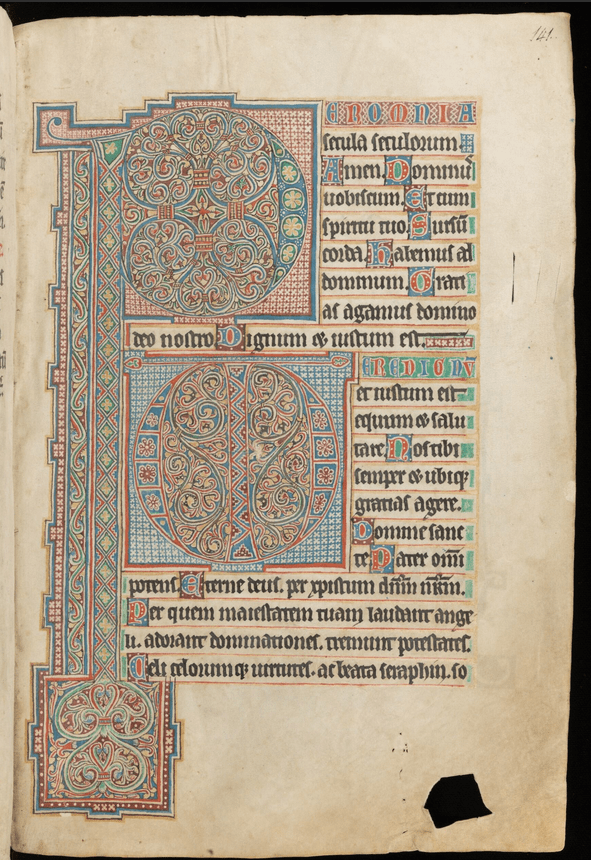 141.
PEROMNIA
secula seculorum.
Amen. Dominus
uobiscum. Et cum
spiritu tuo. Sursū
corda. Habemus ad
dominum. Grati
as agamus domino
deo nostro. Dignum & iustum est.
VEREDIGNV
et iustum est
equum & salu
tare. Nos tibi
semper & ubiq;
gratias agere.
Domine sanc
te Pater om̄i
potens Eterne deus. per xpistum dn̄m nr̄m.
Per quem maiestatem tuam laudant ange
li. adorant dominationes. tremunt potestates.
Celi celorumq; uirtutes. ac beata seraphin. so